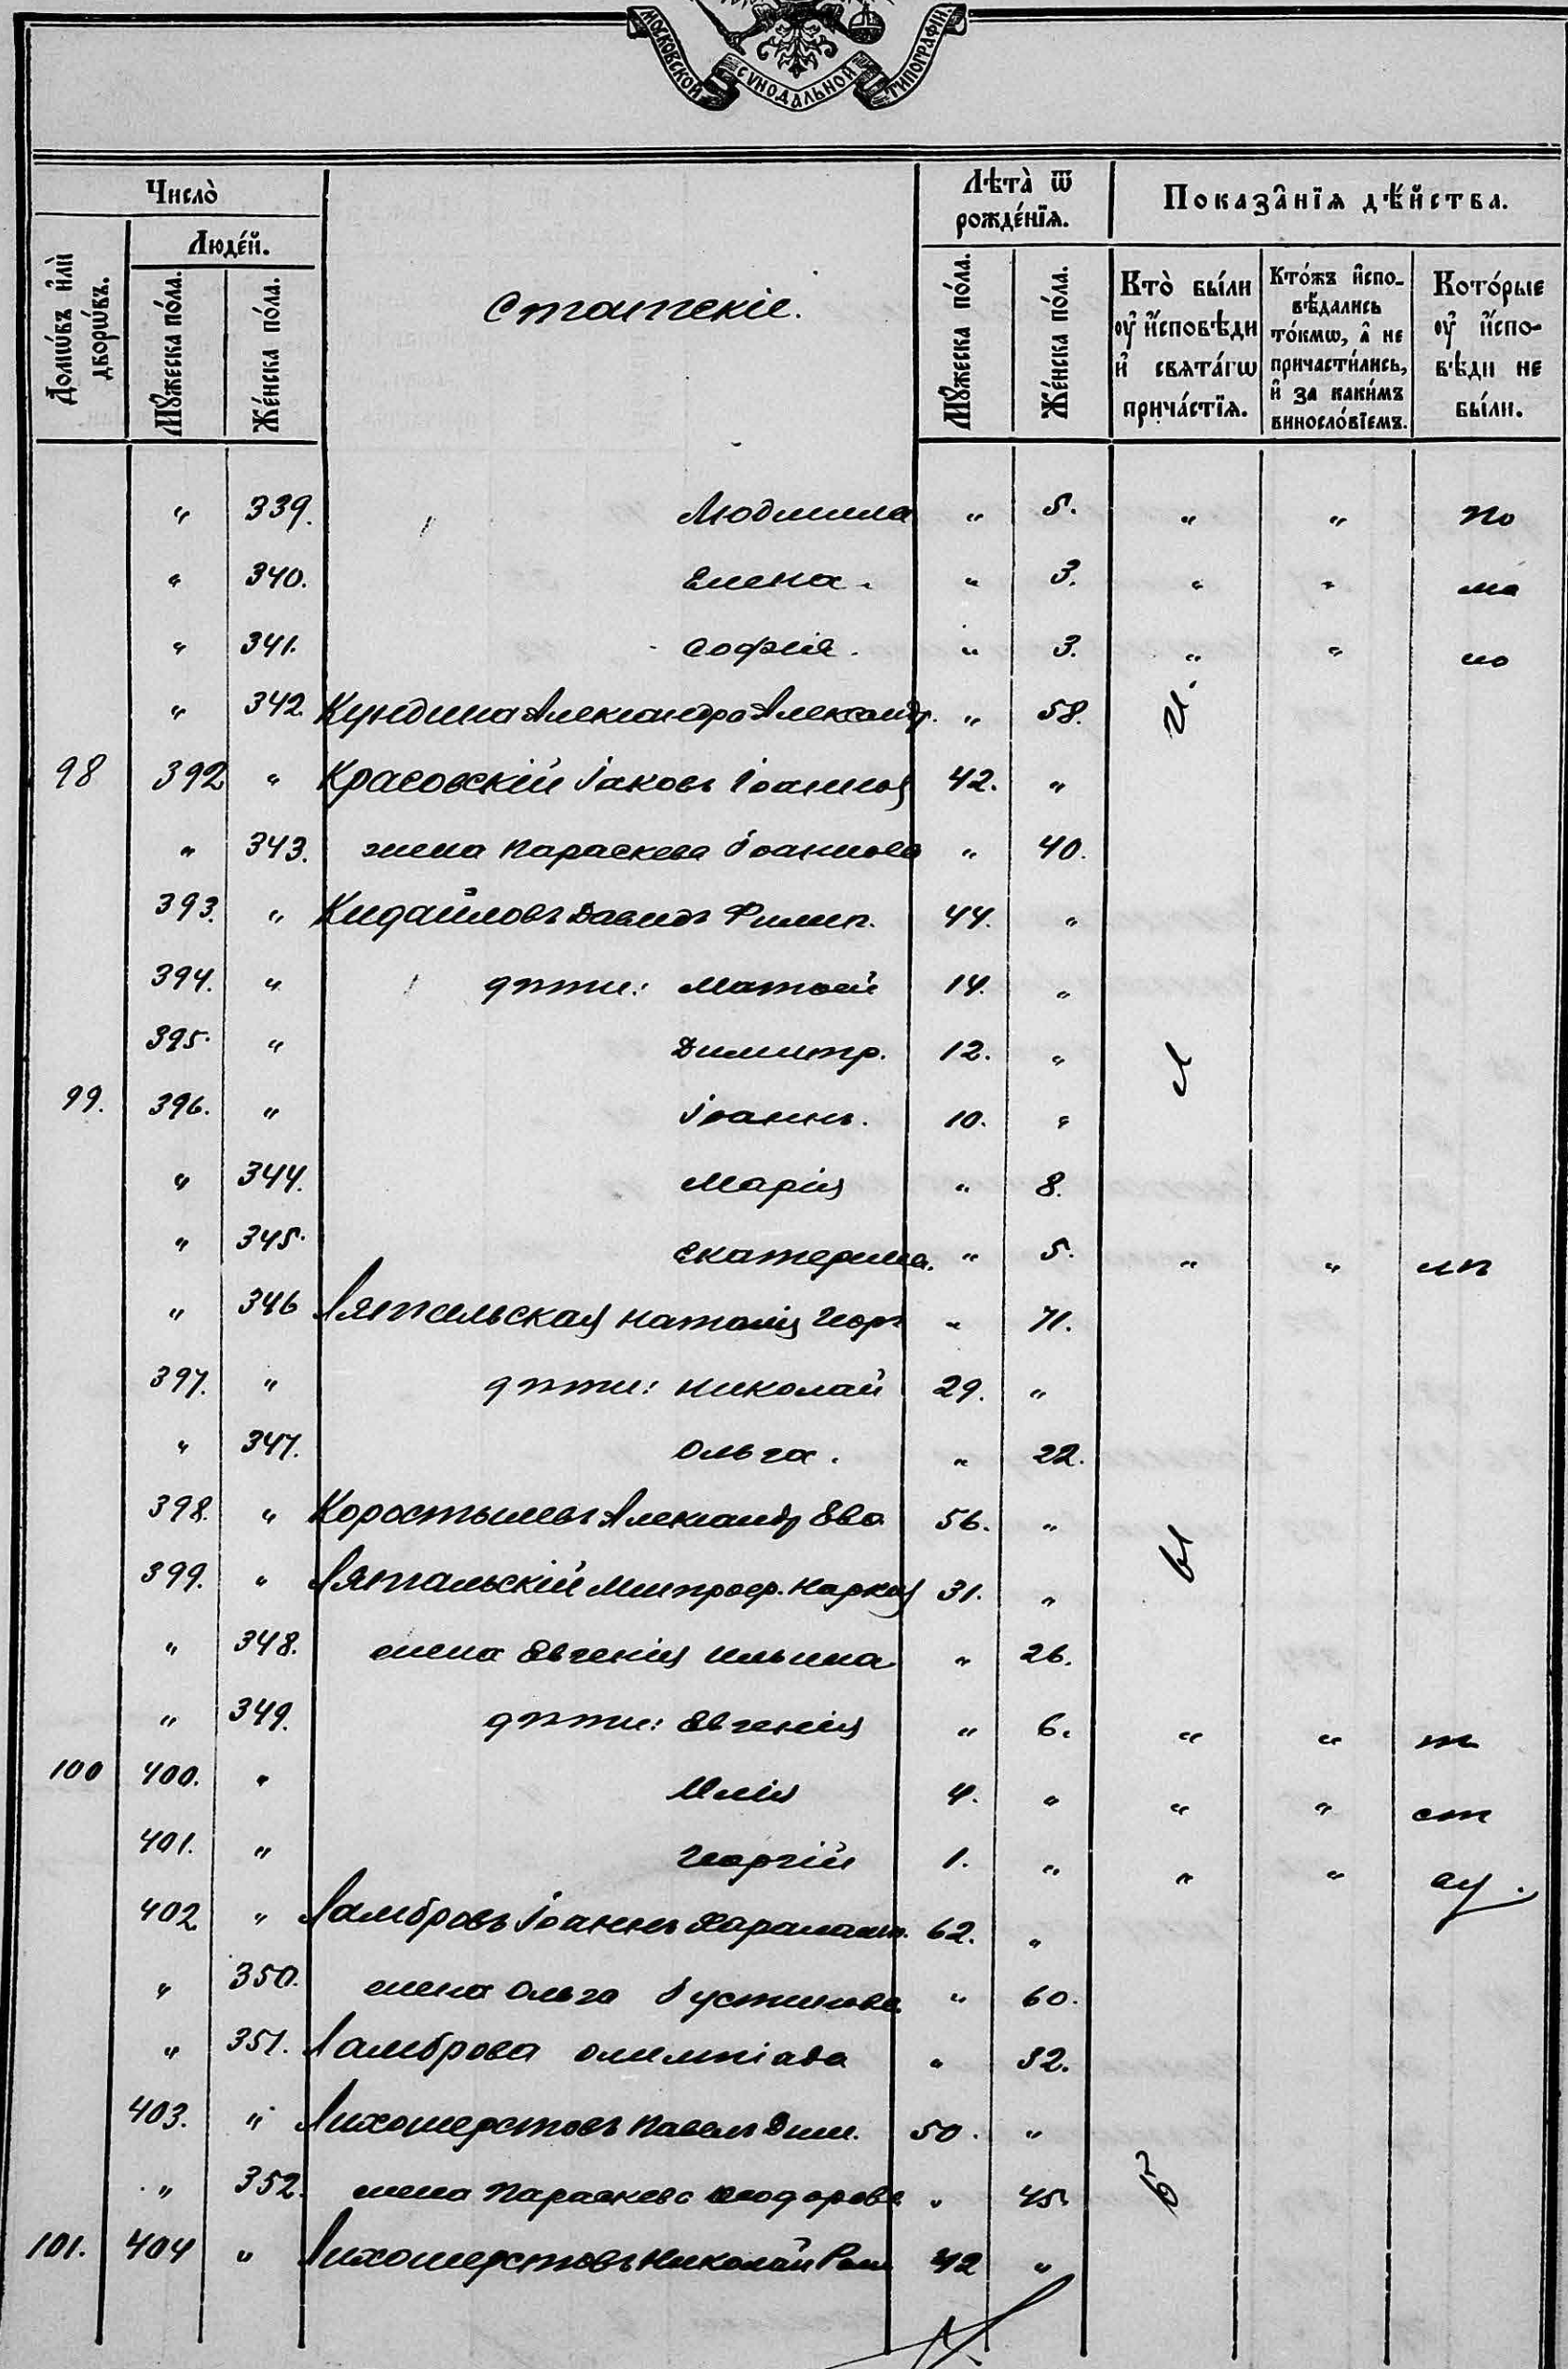 МОСКОВСКОЙ СѴНОДАЛЬНОЙ ТИПОГРАФІИ
Число̀
Людéй.
Домѡ́въ и҆лѝ дворѡ́въ.
Мꙋ́жеска по́ла.
Же́нска по́ла.
Статскіе.
Лѣта̀ ѿ рожде́нїѧ.
Мꙋ́жеска по́ла.
Же́нска по́ла.
Показа̑нїѧ дѣ́йства.
Кто̀ бы́ли оу҆ и҆́сповѣди и҆ свѧта́гѡ прича́стїѧ.
Кто́жъ и҆спо-вѣ́дались то́кмѡ, а҆ не причасти́лись, и҆ за каки́мъ винослóвїемъ.
Кото́рые оу҆ и҆́спо-вѣди не бы́ли.
„ 339. Людмила „ 5. „ „ по
„ 340. Елена. „ 3. „ „ ма
„ 341. Софія. „ 3. „ „ ло
„ 342. Кундина Александра Александр. „ 58. и
98 392 „ Красовскій Іаковъ Іоаннов 42. „
„ 343. жена Параскева Іоаннова „ 40.
393. „ Кидайловъ Давидъ Филип. 44. „
394. „ дѣти: Матѳей 14. „
395. „ Димитр. 12. „ л
99. 396. „ Іоаннъ. 10. „
„ 344. Марія „ 8.
„ 345. Екатерина. „ 5. „ „ лѣ
„ 346 Лятальская Наталія Георг „ 71.
397. „ дѣти: Николай 29. „
„ 347. Ольга. „ 22.
398. „ Коростылевъ Александр Ева 56. „ ы
399. „ Лятальскій Митроф. Карпов 31. „
„ 348. жена Евгенія Ильина „ 26.
„ 349. дѣти: Евгенія „ 6. „ „ т
100 400. „ Илія 4. „ „ „ ст
401. „ Георгій 1. „ „ „ ву.
402 „ Ламбровъ Іоаннъ Харалamп. 62. „
„ 350. жена Ольга Іустинова „ 60.
„ 351. Ламброва Олимпіада „ 32.
403. „ Лихошерстовъ Павелъ Дим. 50. „
„ 352. жена Параскева Ѳеодорова „ 45. б
101. 404 „ Лихошерстовъ Николай Ром 42 „